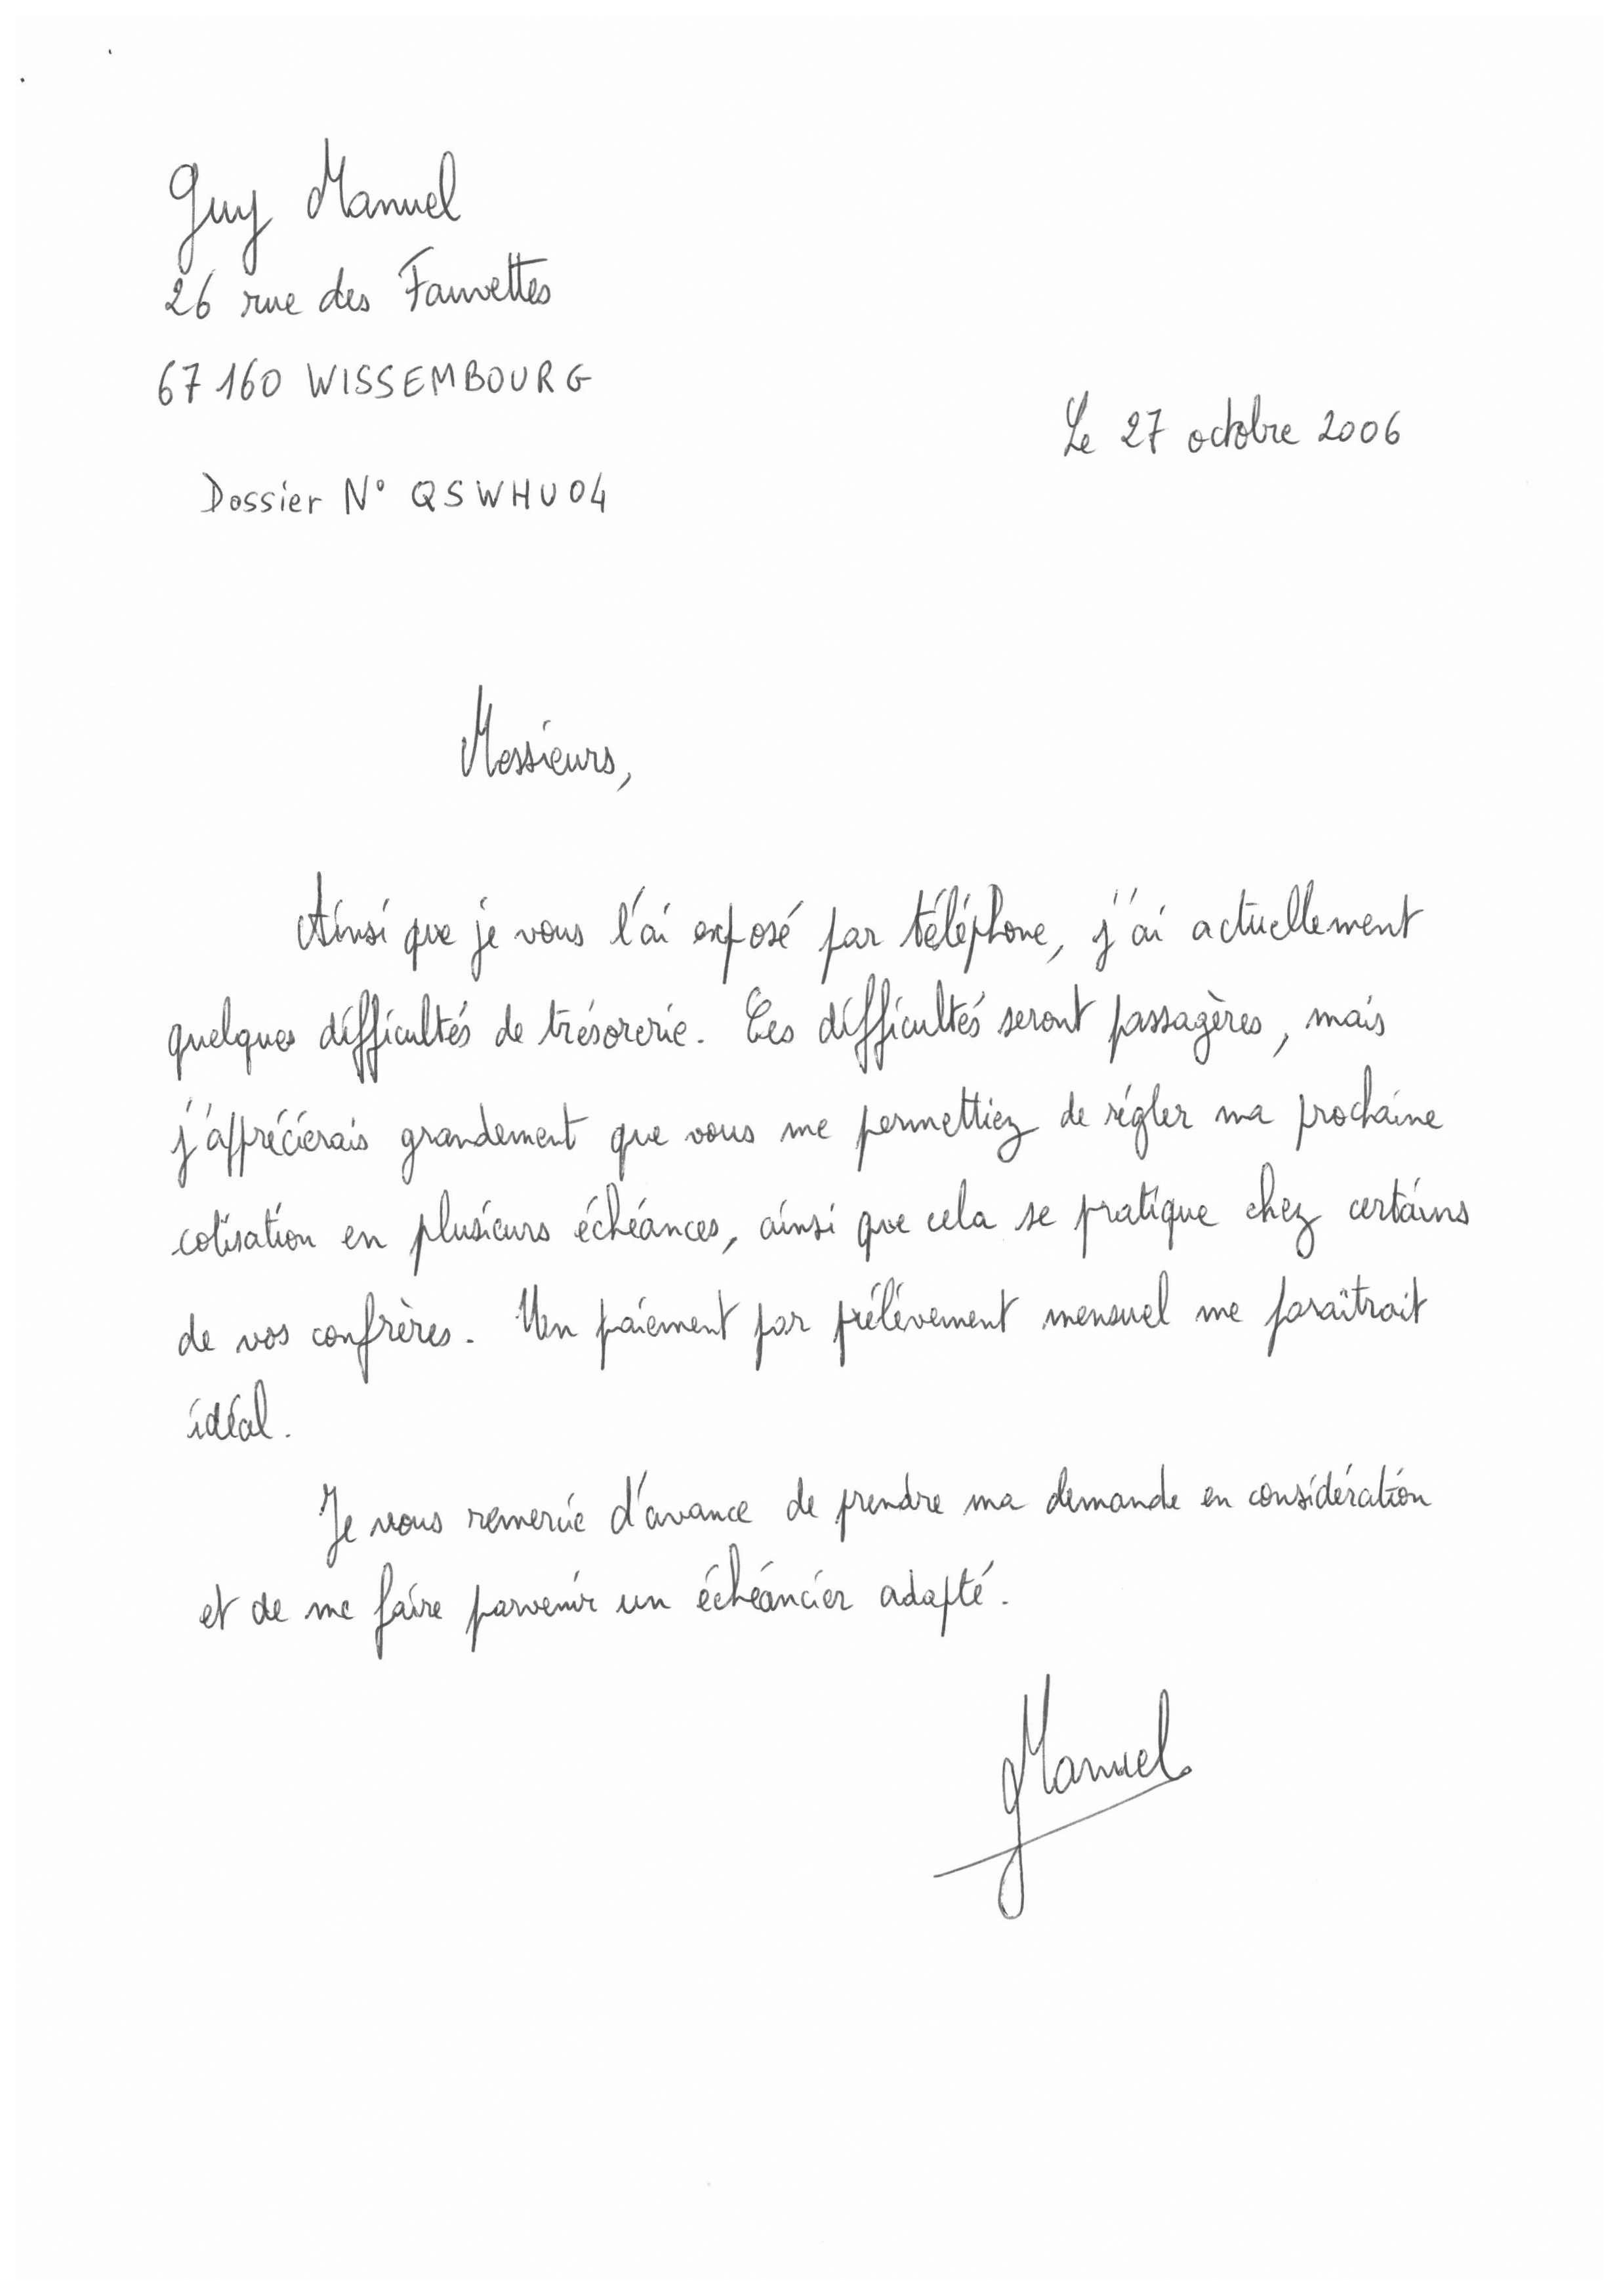 Guy Manuel
26 rue des Fauvettes
67160 WISSEMBOURG
Le 27 octobre 2006
Dossier N° QSWHU04
Messieurs,
Ainsi que je vous l'ai exposé par téléphone, j'ai actuellement
quelques difficultés de trésorerie. Ces difficultés seront passagères, mais
j'apprécierais grandement que vous me permettiez de régler ma prochaine
cotisation en plusieurs échéances, ainsi que cela se pratique chez certains
de vos confrères. Un paiement par prélévement mensuel me paraîtrait
idéal.
Je vous remercie d'avance de prendre ma demande en considération
et de me faire parvenir un échéancier adapté.
GManuel